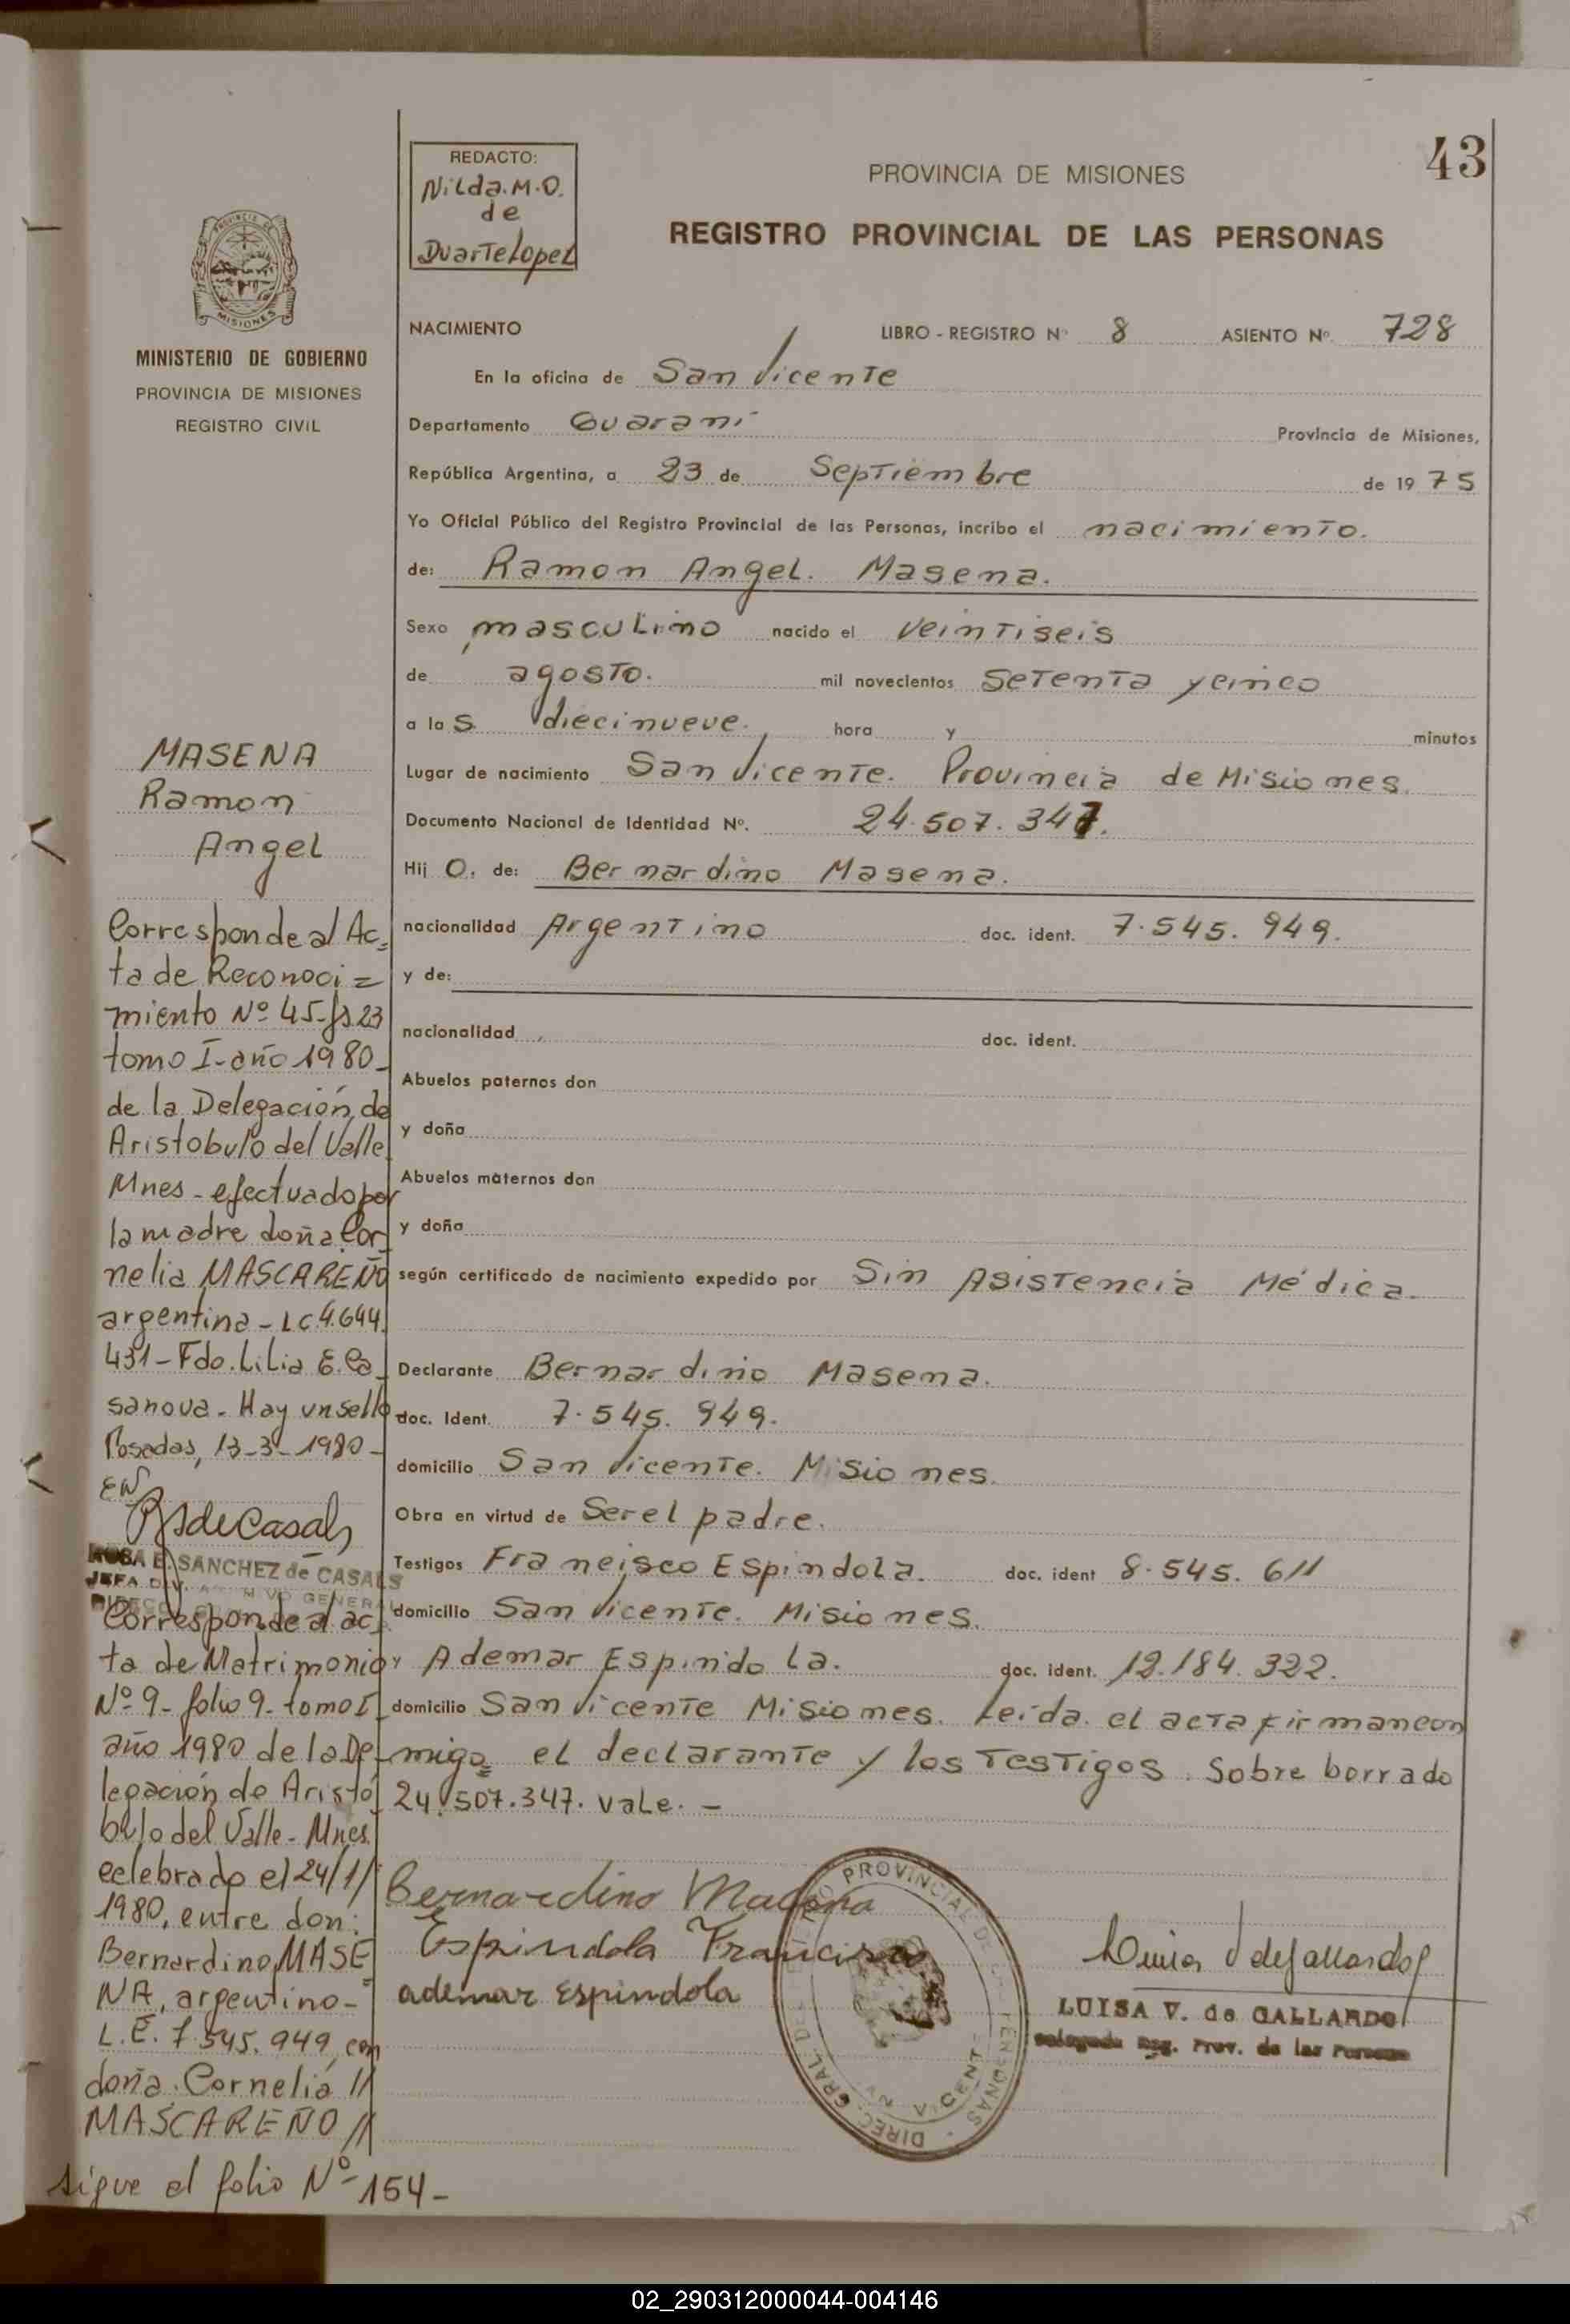 43
REDACTO:
Nilda.M.O.
de
DuarteLopez
PROVINCIA DE MISIONES
REGISTRO PROVINCIAL DE LAS PERSONAS
MISIONES
MINISTERIO DE GOBIERNO
PROVINCIA DE MISIONES
REGISTRO CIVIL
NACIMIENTO LIBRO - REGISTRO Nº 8 ASIENTO Nº 728
En la oficina de San Vicente
Departamento Guarani Provincia de Misiones,
República Argentina, a 23 de Septiembre de 19 75
Yo Oficial Público del Registro Provincial de las Personas, incribo el nacimiento.
de: Ramon Angel. Masena.
Sexo masculino nacido el veintiseis
de agosto. mil novecientos setenta y cinco
a la s diecinueve. hora y minutos
Lugar de nacimiento San Vicente. Provincia de Misiones.
Documento Nacional de Identidad Nº. 24.507.347.
Hij o. de: Bernardino Masena.
nacionalidad Argentino doc. ident. 7.545.949.
y de:
nacionalidad doc. ident.
Abuelos paternos don
y doña
Abuelos maternos don
y doña
según certificado de nacimiento expedido por Sin Asistencia Médica.
Declarante Bernardino Masena.
doc. Ident. 7.545.949.
domicilio San Vicente. Misiones.
Obra en virtud de Ser el padre.
Testigos Francisco Espindola. doc. ident 8.545.611
domicilio San Vicente. Misiones.
y Ademar Espindola. doc. ident. 12.184.322.
domicilio San Vicente Misiones. Leída el acta firman con
migo= el declarante y los testigos. Sobre borrado
24.507.347. vale. -
Bernardino Masena
Espindola Francisco
ademar Espindola
LUISA V. de GALLARDO
Delegada Reg. Prov. de las Personas
MASENA
Ramon
Angel
Corresponde al Ac=
ta de Reconoci=
miento Nº 45-fs 23
tomo I-año 1980-
de la Delegación de
Aristobulo del Valle
Mnes - efectuado por
la madre doña Cor
nelia MASCAREÑO
argentina - LC 4.644.
431 - Fdo. Lilia E. Ca
sanova. Hay un sello
Posadas, 13-3-1980-
EW
ROSA E. SANCHEZ de CASALS
JEFA DIV. ARCHIVO GENERAL
Corresponde al ac
ta de Matrimonio
Nº 9 - folio 9 - tomo I
año 1980 de la De
legación de Aristó
bulo del Valle - Mnes.
celebrado el 24/1/
1980, entre don:
Bernardino MASE
NA, argentino-
L.E. 7.545.949, con
doña Cornelia //
MASCAREÑO //
sigue al folio Nº 154-
02_290312000044-004146